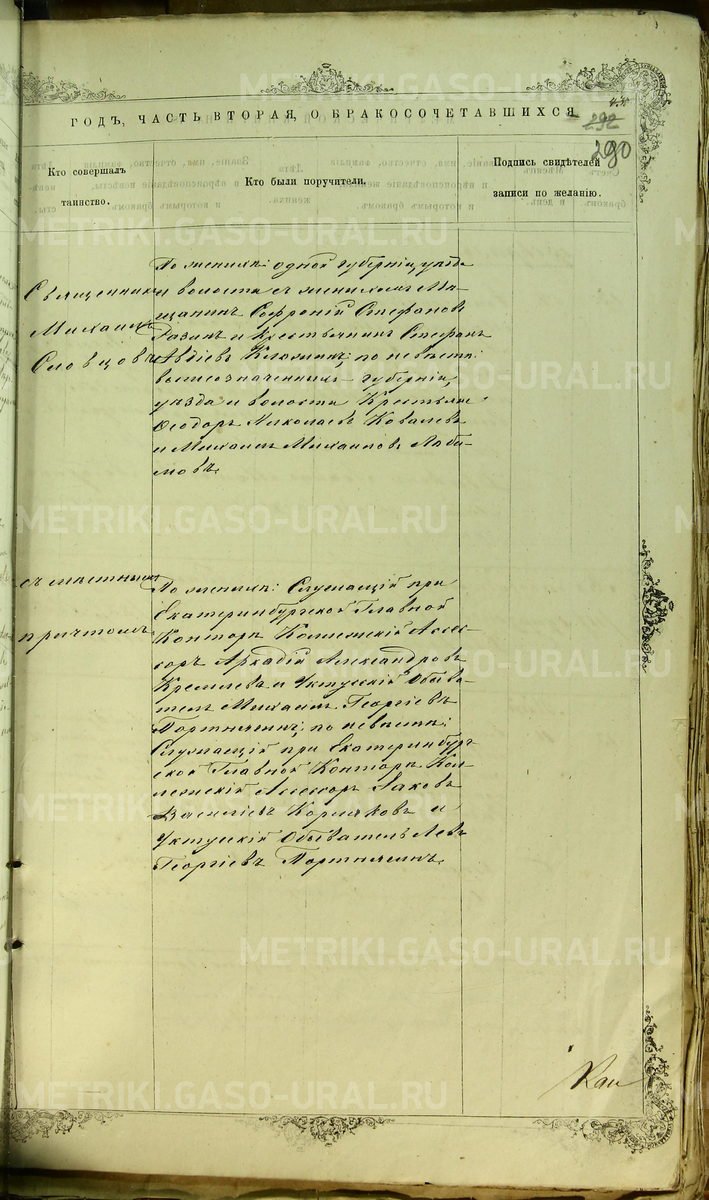 ГОДЪ, ЧАСТЬ ВТОРАЯ, О БРАКОСОЧЕТАВШИХСЯ
292
290
Кто совершалъ
таинство.
Кто были поручители.
Подпись свидѣтелей
записи по желанію.
Священникъ
Михаилъ
Словцовъ
съ мѣстнымъ
причтомъ
По женихѣ: одной губерніи, уѣзда
и волости съ женихомъ Мѣ-
щанинъ Софроній Стефановъ
и Крестьянинъ Стефанъ
по невѣстѣ:
вышеозначенныхъ губерніи,
уѣзда и волости Крестьяне
Ѳеодоръ Николаевъ Ковалевъ
и Михаилъ Михаиловъ Люби-
мовъ.
По женихѣ: Служащій при
Екатеринбургской Главной
Конторѣ Коллежскій Ассес-
соръ Аркадій Александровъ
Кремлевъ и Уктусскій Обыва-
тель Михаилъ Георгіевъ
Портнягинъ; по невѣстѣ:
Служащій при Екатеринбург-
ской Главной Конторѣ Кол-
лежскій Ассесоръ Іаковъ
Василіевъ и
Уктусскій Обыватель Левъ
Георгіевъ Портнягинъ.
METRIKI.GASO-URAL.RU